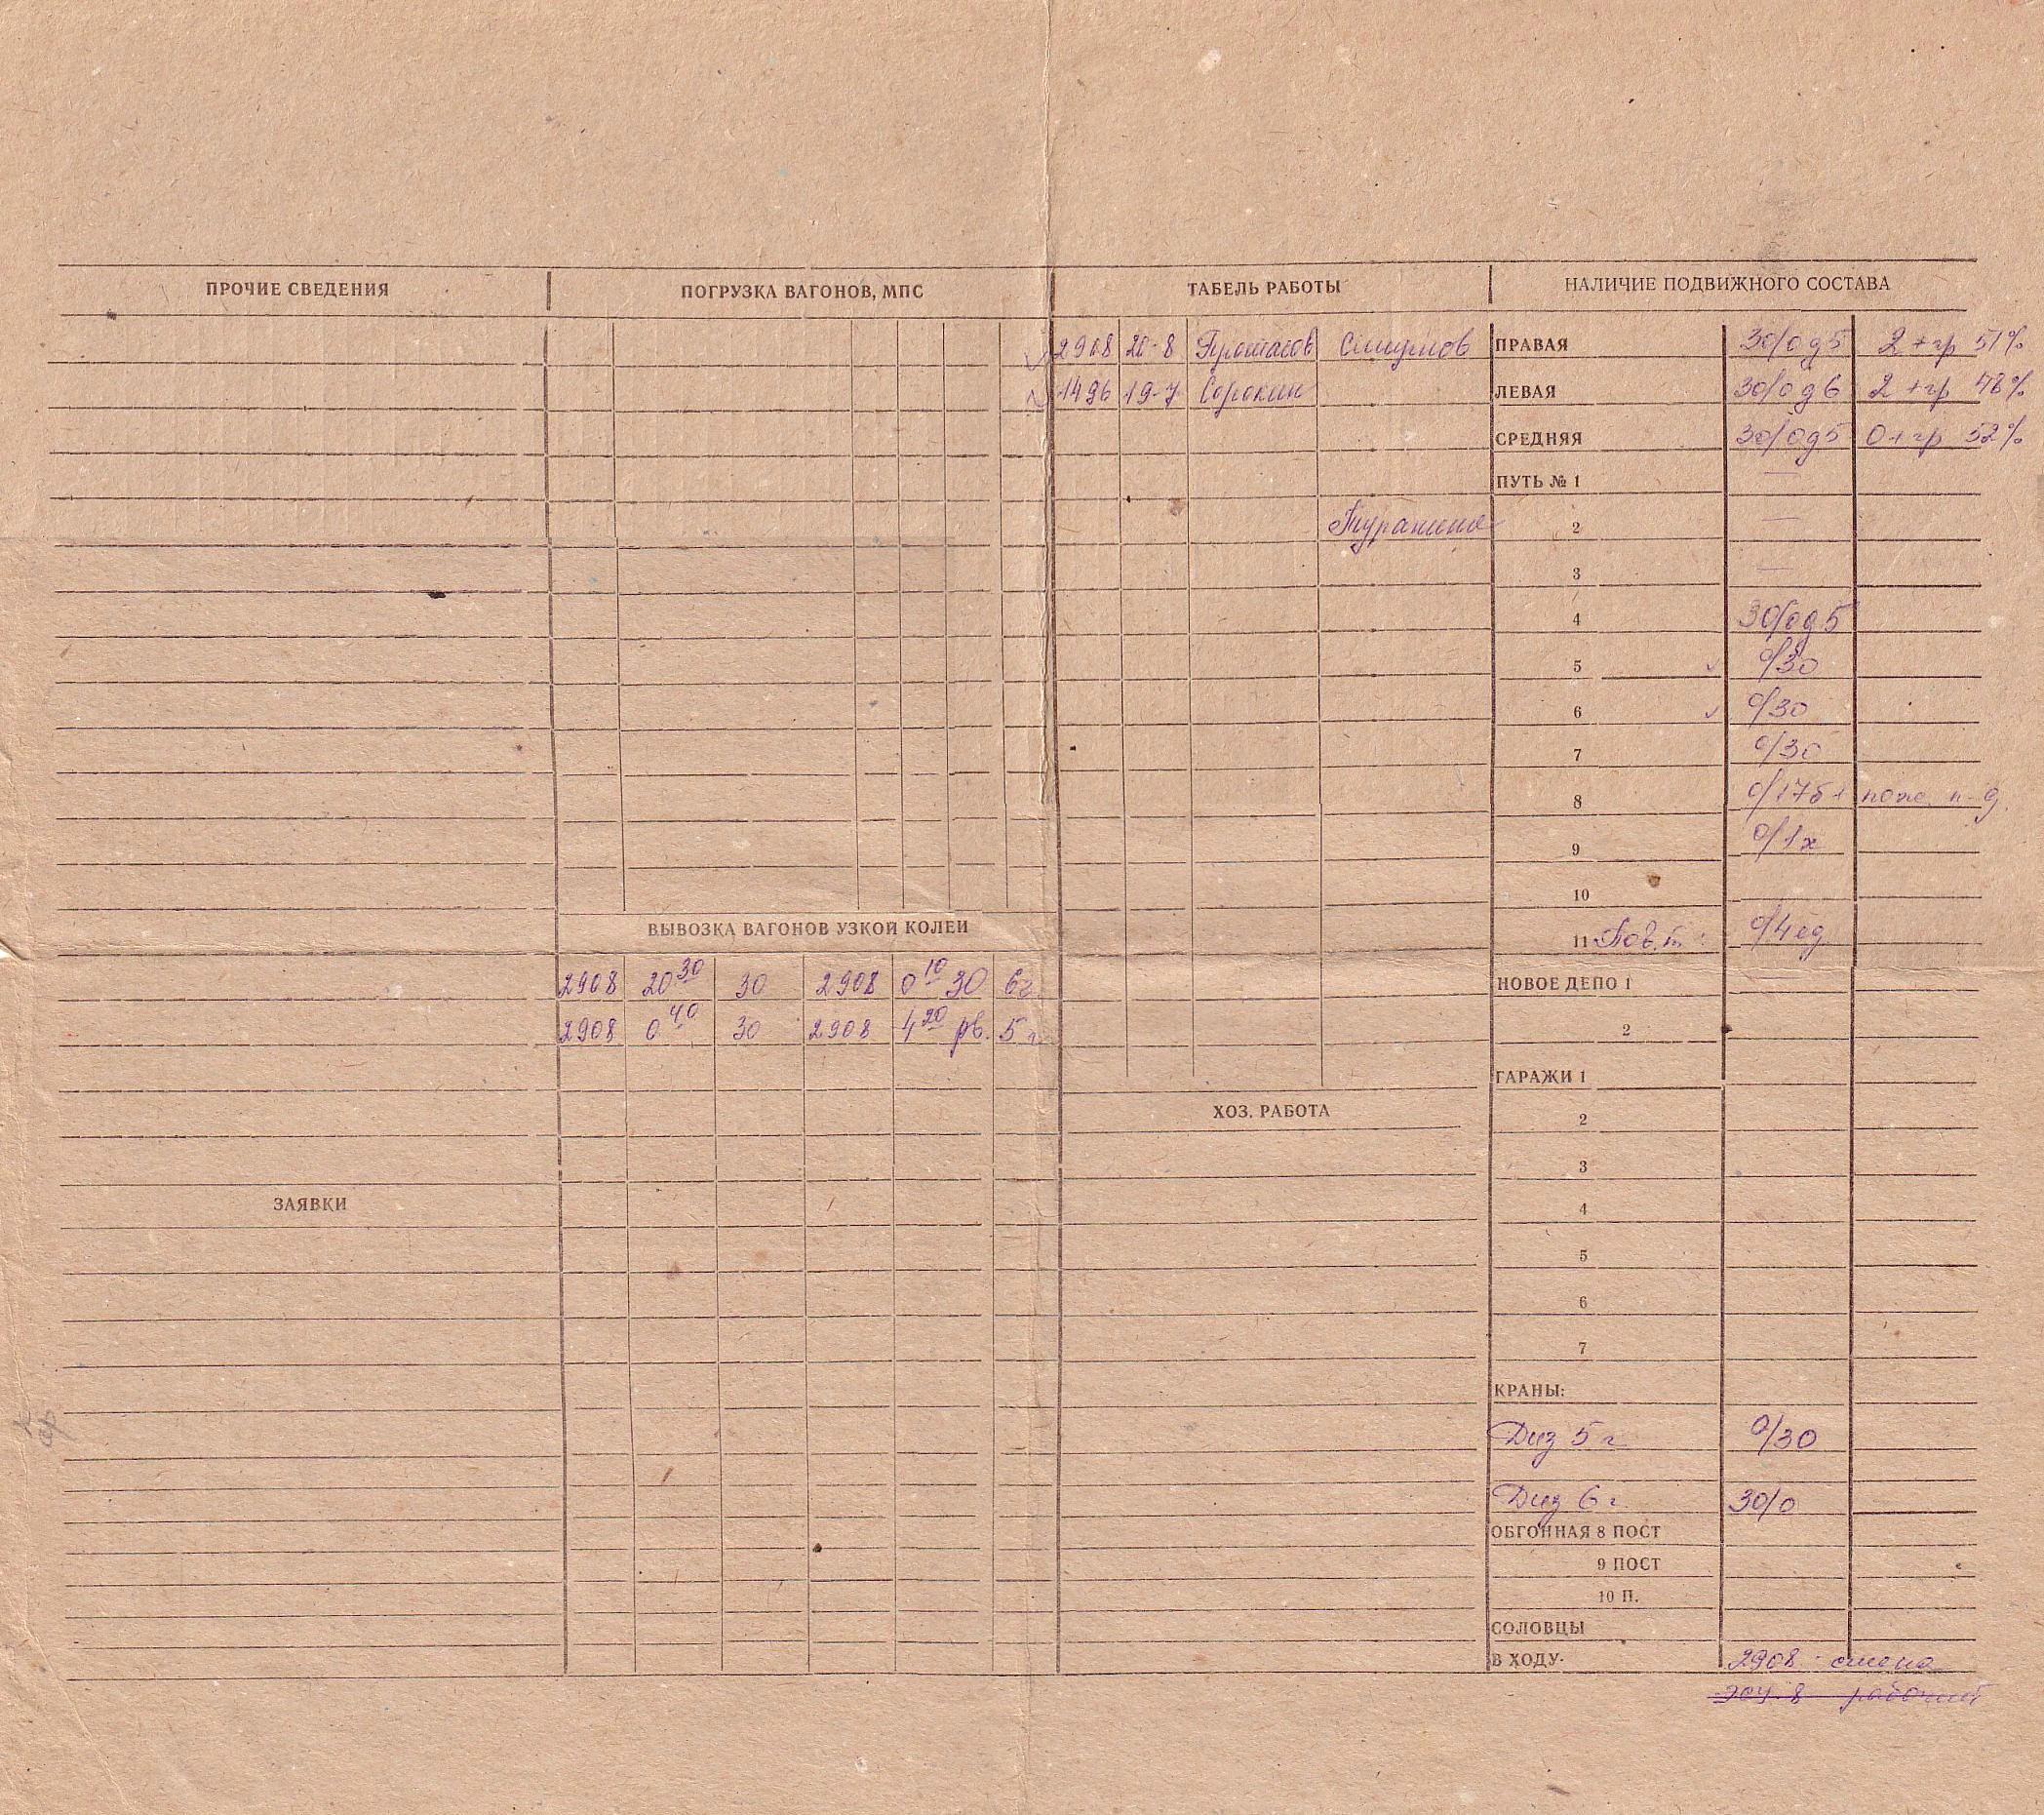 ПРОЧИЕ СВЕДЕНИЯ
ПОГРУЗКА ВАГОНОВ, МПС
ТАБЕЛЬ РАБОТЫ
НАЛИЧИЕ ПОДВИЖНОГО СОСТАВА
2908 20-8 Протасов Смирнов
1496 19-7 Сорокин
ПРАВАЯ 30/0 д5 2 + гр 51%
ЛЕВАЯ 30/0 д6 2 + гр 48%
СРЕДНЯЯ 30/0 д5 0 + гр 52%
ПУТЬ № 1 —
2 —
3 —
4 30/0 д5
5 0/30
6 0/30
7 0/30
8
9 0/1х
10
11 0/4 ед
НОВОЕ ДЕПО 1 —
2
ГАРАЖИ 1
2
3
4
5
6
7
КРАНЫ:
Диз 5 г 0/30
Диз 6 г. 30/0
ОБГОННАЯ 8 ПОСТ
9 ПОСТ
10 П.
СОЛОВЦЫ
В ХОДУ· 2908 - смена
рабочий
ВЫВОЗКА ВАГОНОВ УЗКОЙ КОЛЕИ
2908 20 30 30 2908 0 10 30 6г
2908 0 40 30 2908 4 20 рв. 5 г
ХОЗ. РАБОТА
ЗАЯВКИ